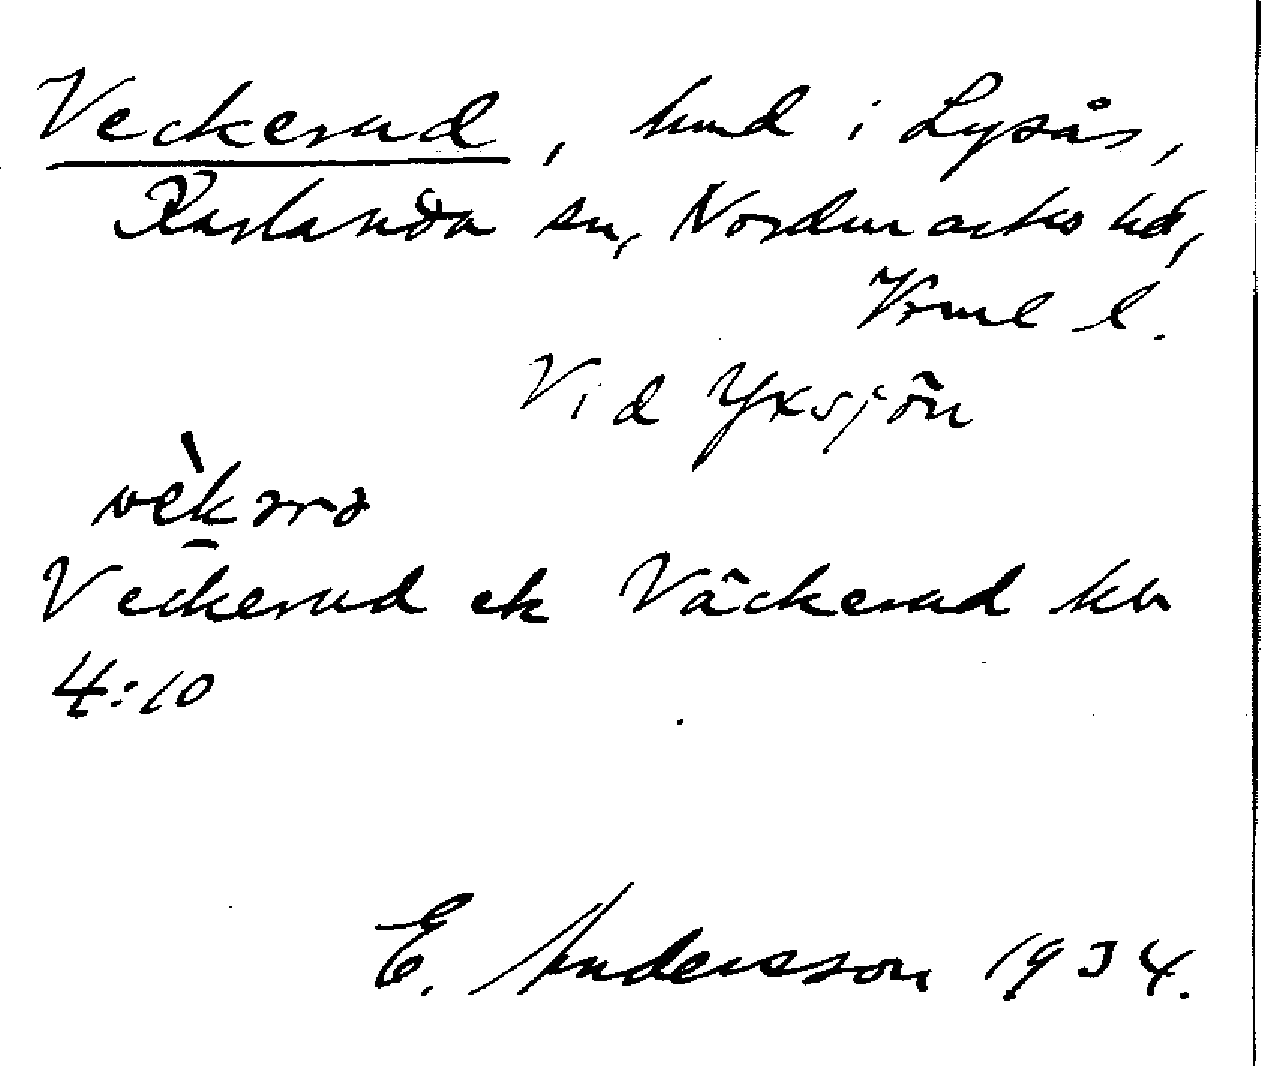 Veckerud, hmd i Lysås,
Karlanda sn, Nordmarks hd,
Vrml l.
Vid Yxsjön
Veckerud ek Väckerud kbr
4:10
E. Andersson 1934.